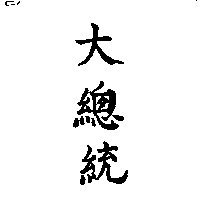 大總統